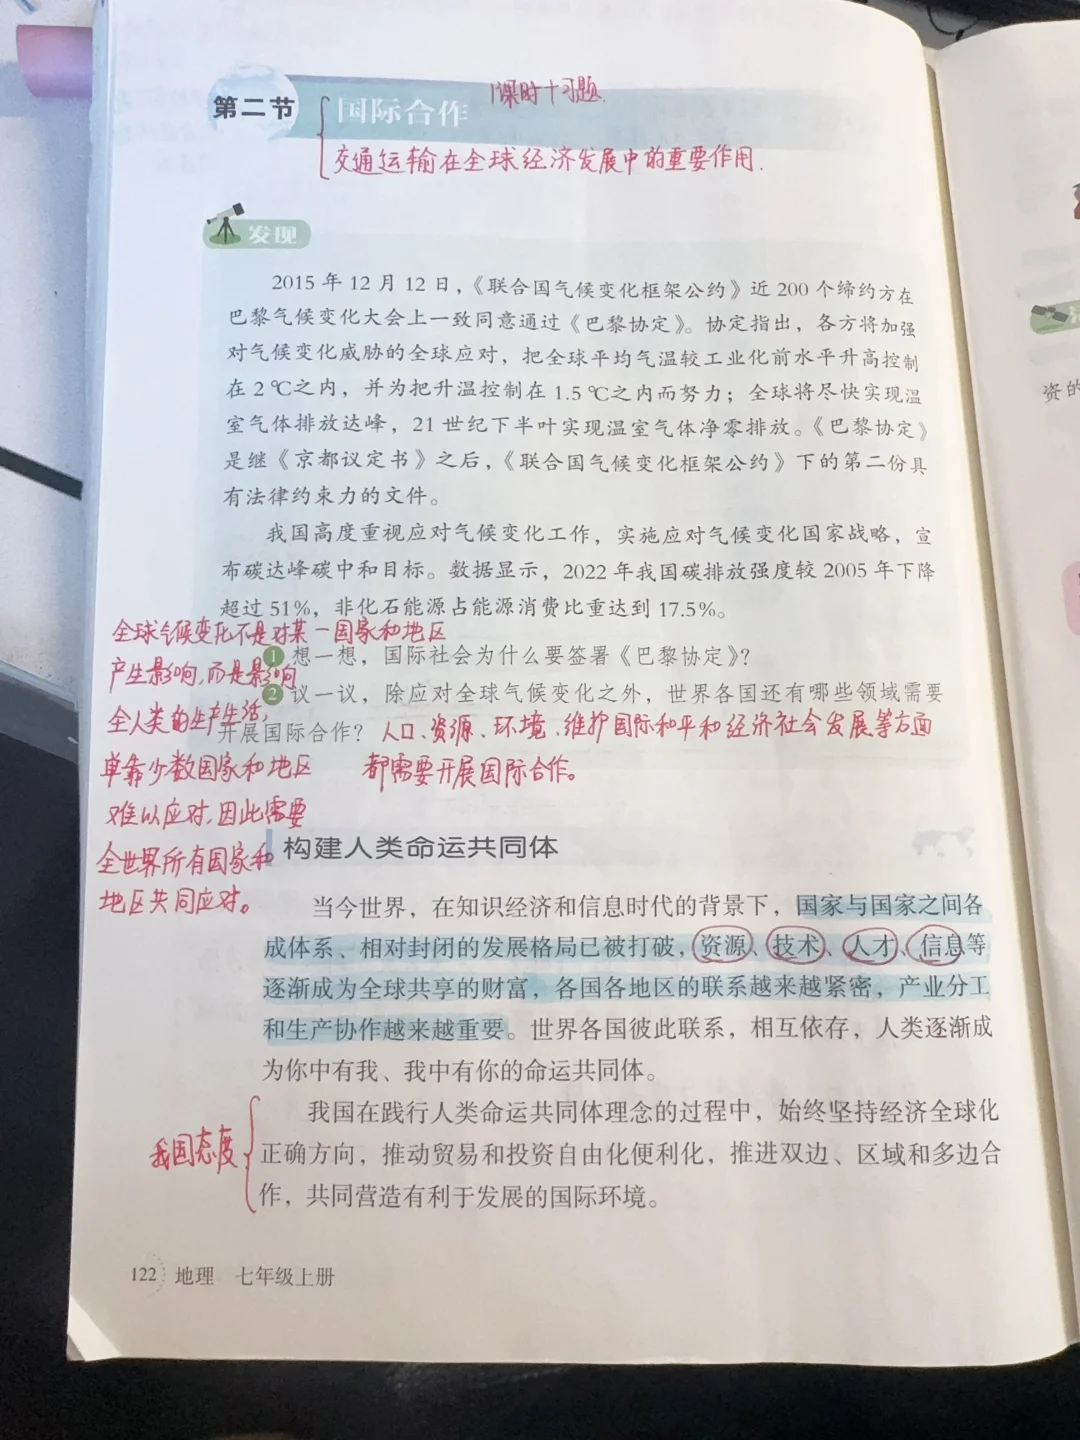 1课时+习题.
第二节 国际合作
交通运输在全球经济发展中的重要作用.
发现
2015年12月12日，《联合国气候变化框架公约》近200个缔约方在
巴黎气候变化大会上一致同意通过《巴黎协定》。协定指出，各方将加强
对气候变化威胁的全球应对，把全球平均气温较工业化前水平升高控制
在2℃之内，并为把升温控制在1.5℃之内而努力；全球将尽快实现温
室气体排放达峰，21世纪下半叶实现温室气体净零排放。《巴黎协定》
是继《京都议定书》之后，《联合国气候变化框架公约》下的第二份具
有法律约束力的文件。
我国高度重视应对气候变化工作，实施应对气候变化国家战略，宣
布碳达峰碳中和目标。数据显示，2022年我国碳排放强度较2005年下降
超过51%，非化石能源占能源消费比重达到17.5%。
全球气候变化不是对某一国家和地区
产生影响，而是影响
全人类的生产生活，
单靠少数国家和地区
难以应对，因此需要
全世界所有国家和
地区共同应对。
1 想一想，国际社会为什么要签署《巴黎协定》？
2 议一议，除应对全球气候变化之外，世界各国还有哪些领域需要
开展国际合作？
人口、资源、环境、维护国际和平和经济社会发展等方面
都需要开展国际合作。
构建人类命运共同体
当今世界，在知识经济和信息时代的背景下，国家与国家之间各
成体系、相对封闭的发展格局已被打破，资源、技术、人才、信息等
逐渐成为全球共享的财富，各国各地区的联系越来越紧密，产业分工
和生产协作越来越重要。世界各国彼此联系，相互依存，人类逐渐成
为你中有我、我中有你的命运共同体。
我国态度
我国在践行人类命运共同体理念的过程中，始终坚持经济全球化
正确方向，推动贸易和投资自由化便利化，推进双边、区域和多边合
作，共同营造有利于发展的国际环境。
122 地理 七年级上册
资的